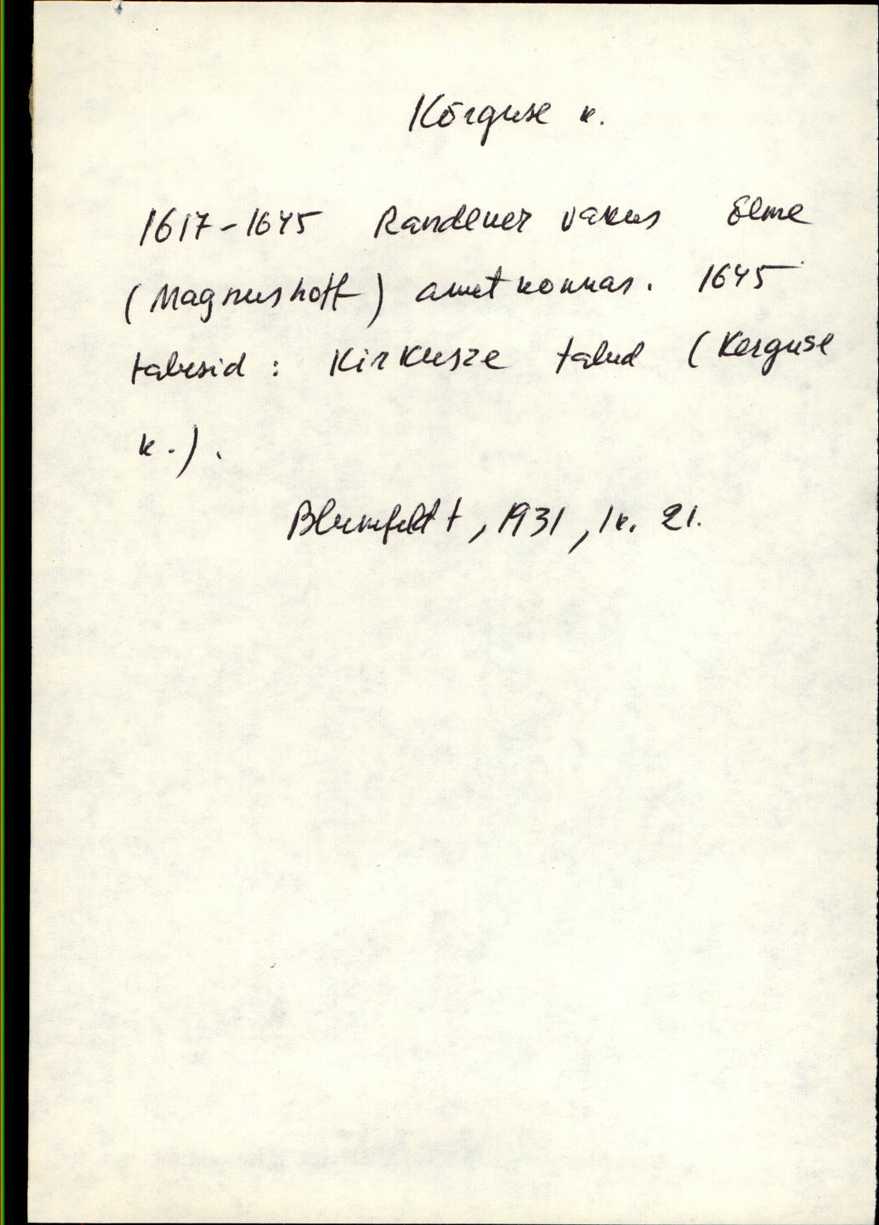 Kõrguse k.
1617-1645 Randeuer vakus Õlme
(Magnushoff) ametkonnas. 1645
talusid: Kirkusze talud (Kerguse
k.).
Blumfeldt, 1931, lk. 21.